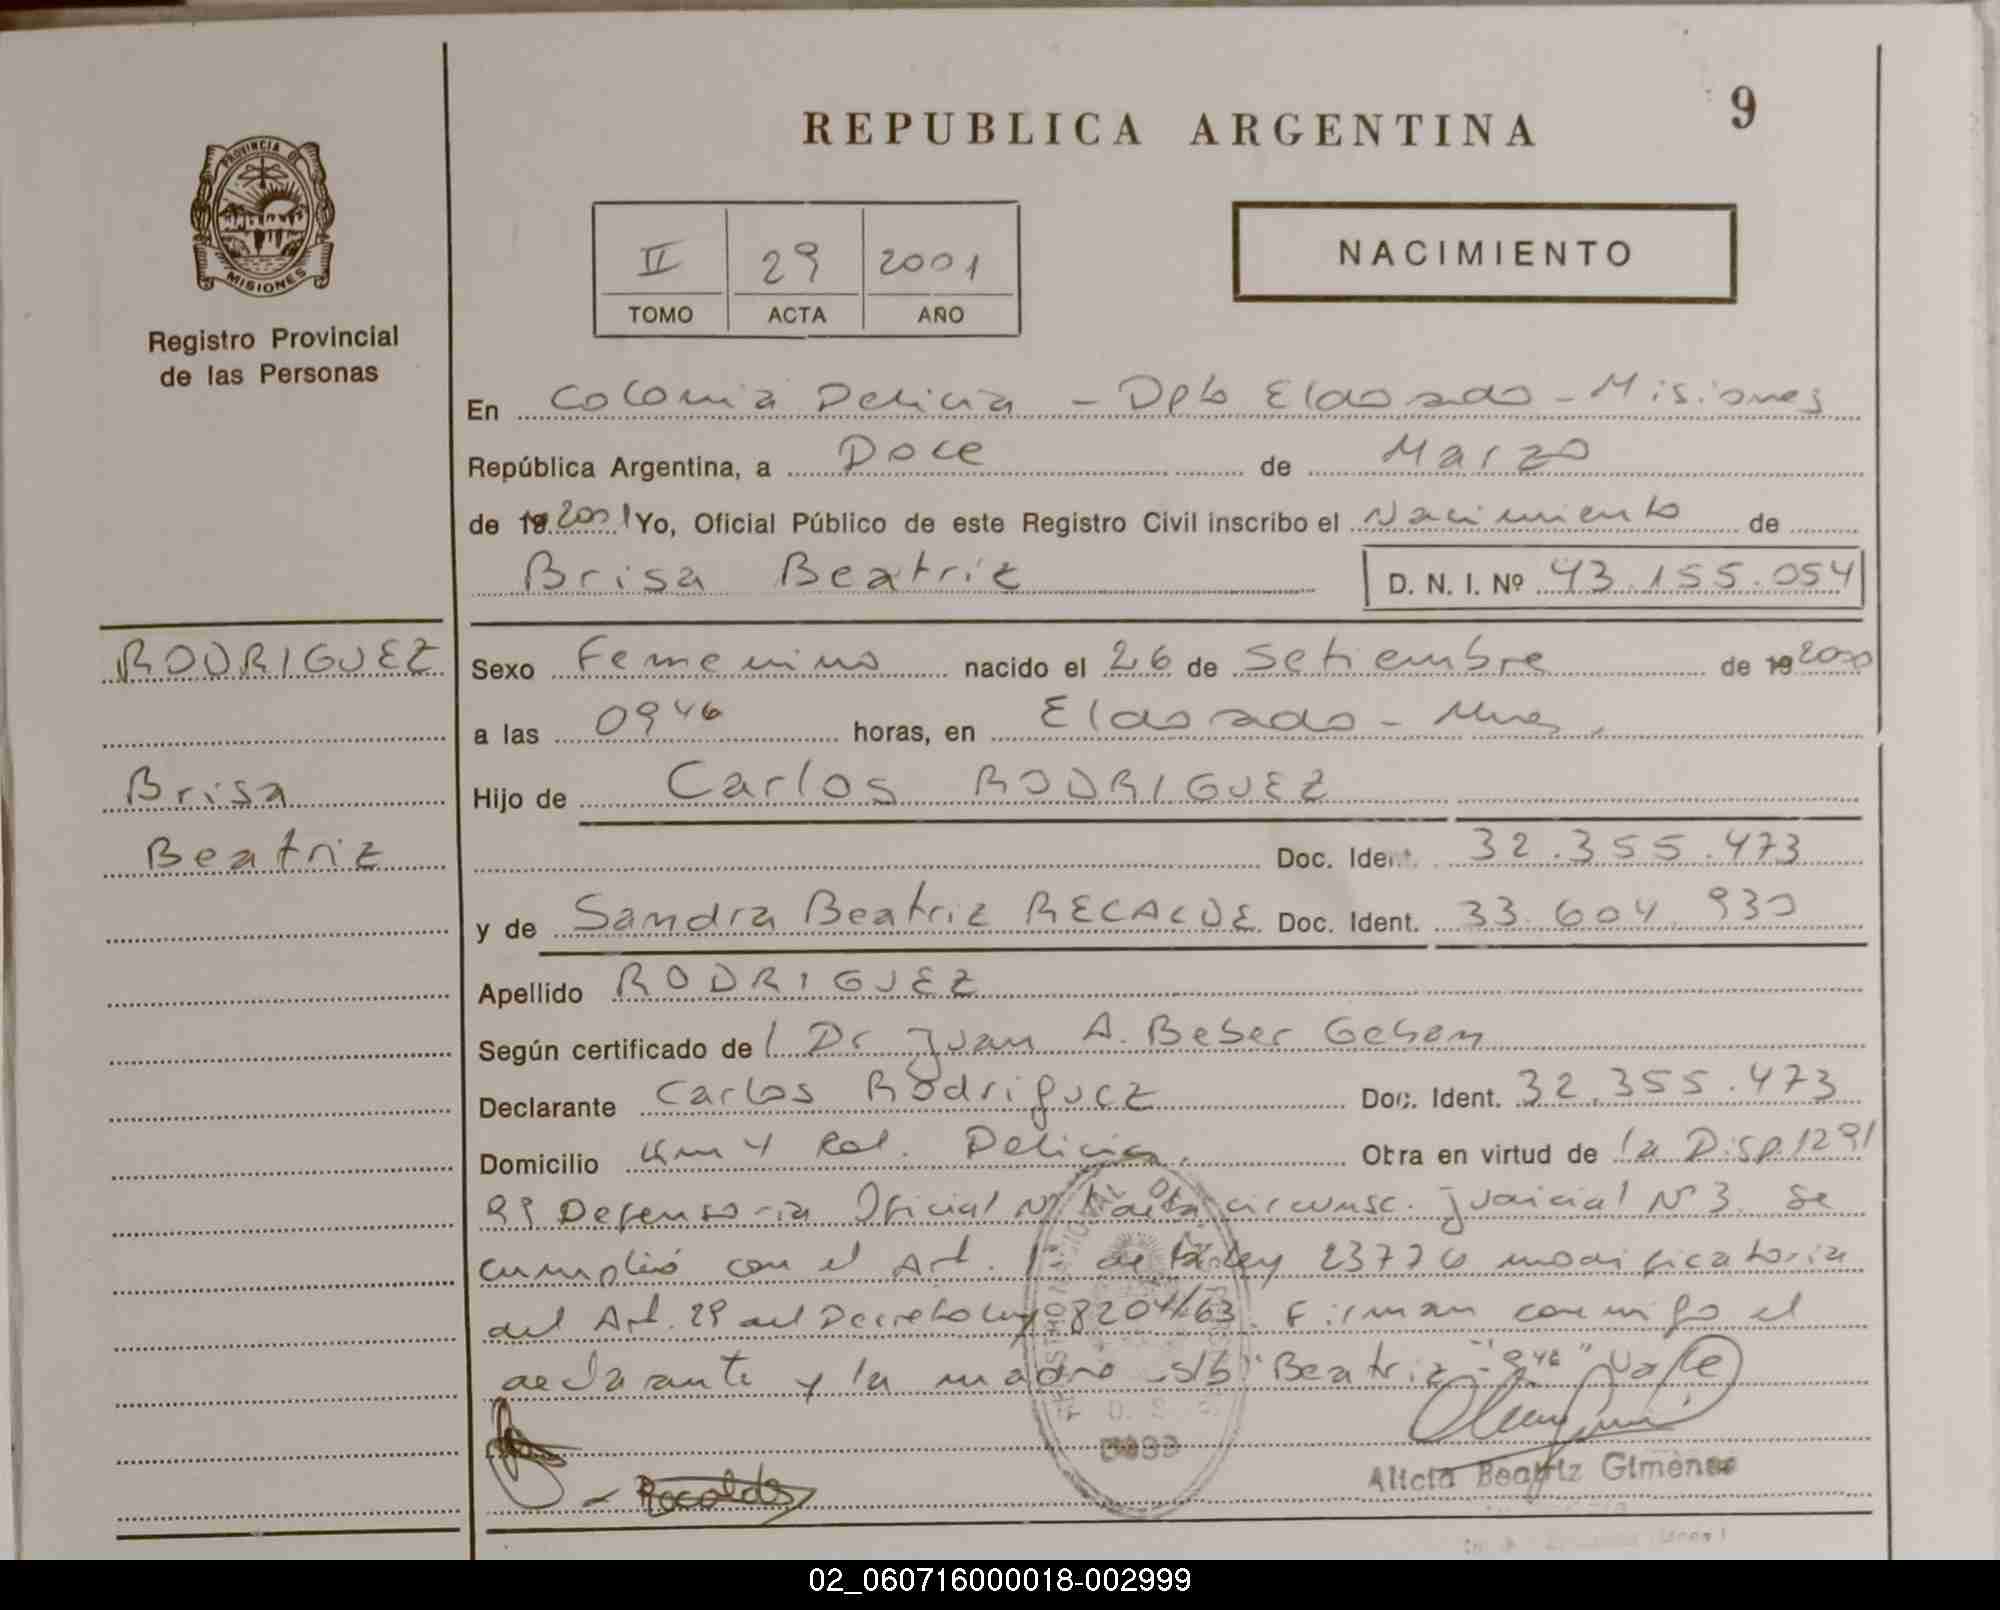 9
REPUBLICA ARGENTINA
PROVINCIA DE
MISIONES
Registro Provincial
de las Personas
II 29 2001
TOMO ACTA AÑO
NACIMIENTO
En Colonia Delicia - Dpto Eldorado - Misiones
República Argentina, a Doce de Marzo
de 19 2001 Yo, Oficial Público de este Registro Civil inscribo el Nacimiento de
Brisa Beatriz D. N. I. Nº 43.155.054
RODRIGUEZ
Brisa
Beatriz
Sexo Femenino nacido el 26 de Setiembre de 19 2000
a las 09 46 horas, en Eldorado - Mnes.
Hijo de Carlos RODRIGUEZ
Doc. Ident. 32.355.473
y de Sandra Beatriz RECALDE Doc. Ident. 33.604.930
Apellido RODRIGUEZ
Según certificado de l Dr Juan A. Beber
Declarante Carlos Rodriguez Doc. Ident. 32.355.473
Domicilio Km 4 Col. Delicia. Obra en virtud de la Disp. 1291
99 Defensoria Oficial Nº circunsc. Judicial Nº 3. Se
cumplió con el Art. 1º de la Ley 23776 modificatoria
del Art. 29 del Decreto Ley 8204/63. Firman conmigo el
declarante y la madre s/b "Beatriz" - "9 46" Vale
Recalde
Alicia Beatriz Gimènez
02_060716000018-002999